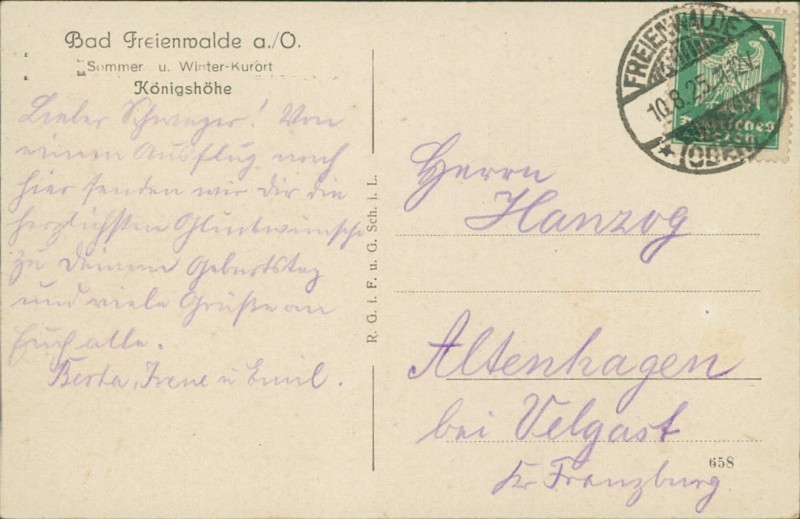 Bad Freienwalde a./O.
Sommer u. Winter-Kurort
Königshöhe
Lieber Schwager! Von
einem Ausflug nach
hier senden wir Dir die
herzlichsten Glückwünsche
zu Deinem Geburtstag
und viele Grüße an
Euch alle.
Berta, Irene u Emil.
R. G. i. F. u. G. Sch. i. L.
FREIENWALDE
10.8.25.
* (ODER)
5
Deutsches
Reich
Herrn
Hanzog
Altenhagen
bei Velgast
Kr Franzburg
658